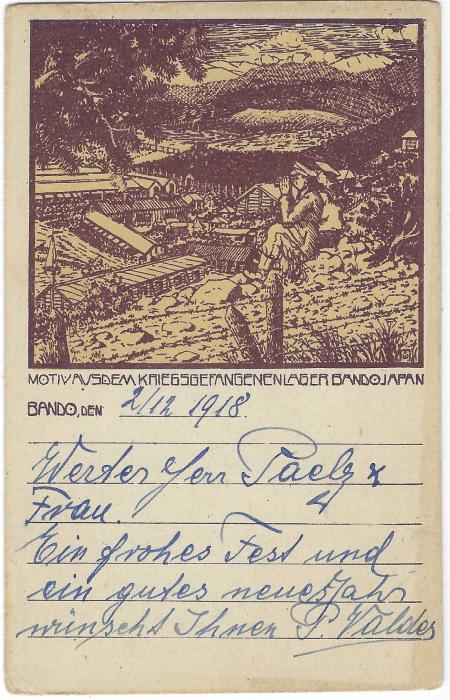 MOTIV AUS DEM KRIEGSGEFANGENENLAGER BANDO JAPAN
BANDO, DEN 2/12 1918.
Werter Herr Paelz &
Frau.
Ein frohes Fest und
ein gutes neues Jahr
wünscht Ihnen P. Valder